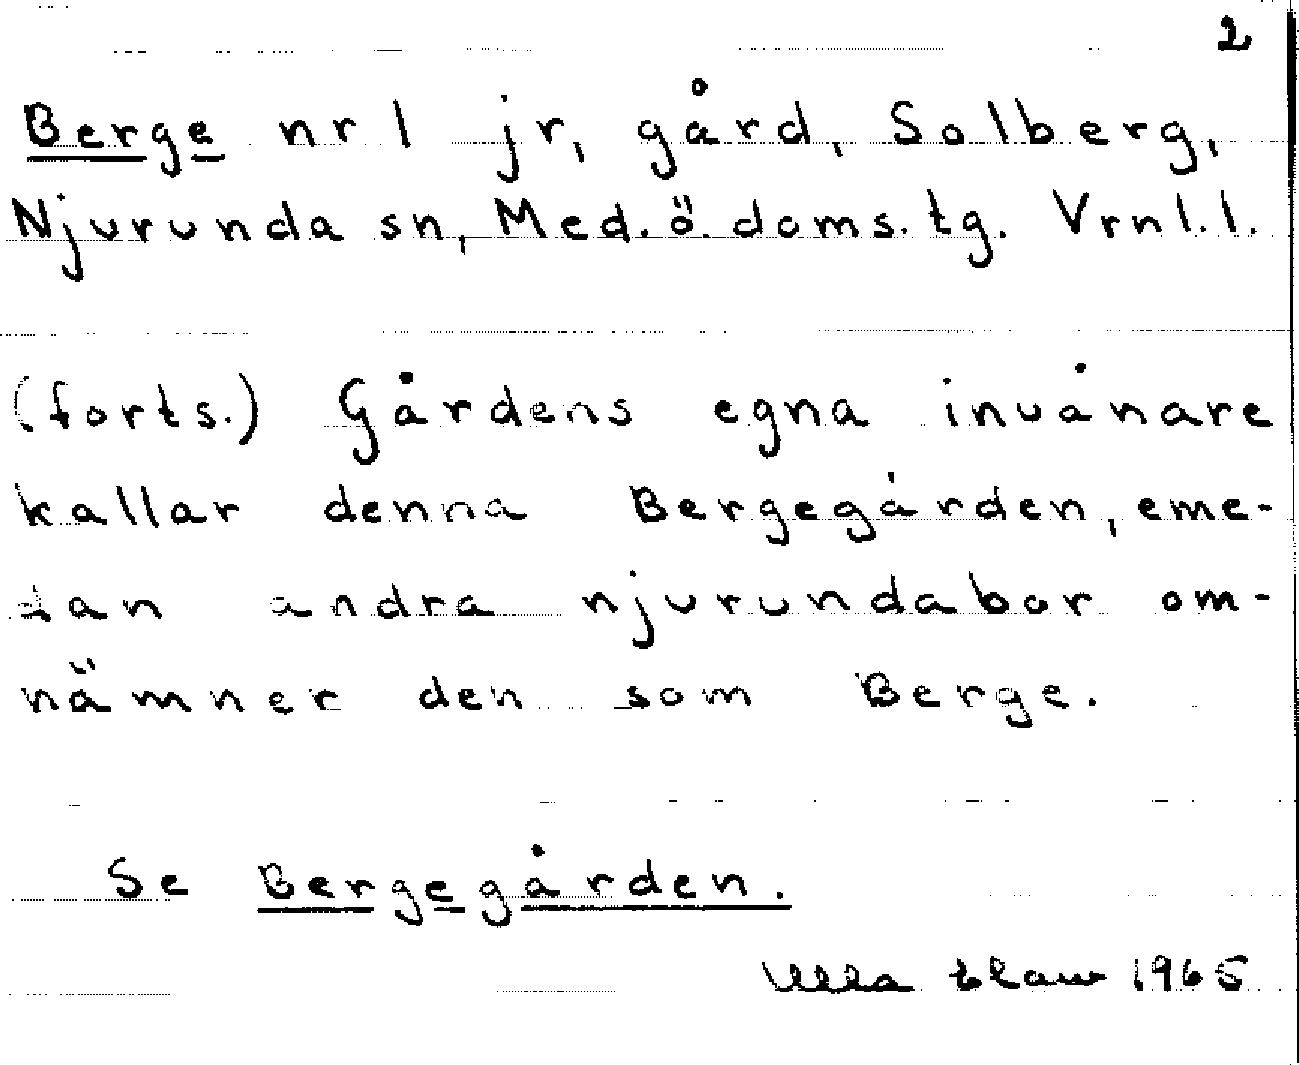 2
Berge nr 1 jr, gård, Solberg,
Njurunda sn, Med. ö. doms. tg. Vrnl. l.
(forts.) Gårdens egna invånare
kallar denna Bergegården, eme-
dan andra njurundabor om-
nämner den som Berge.
Se Bergegården.
Ulla 1965